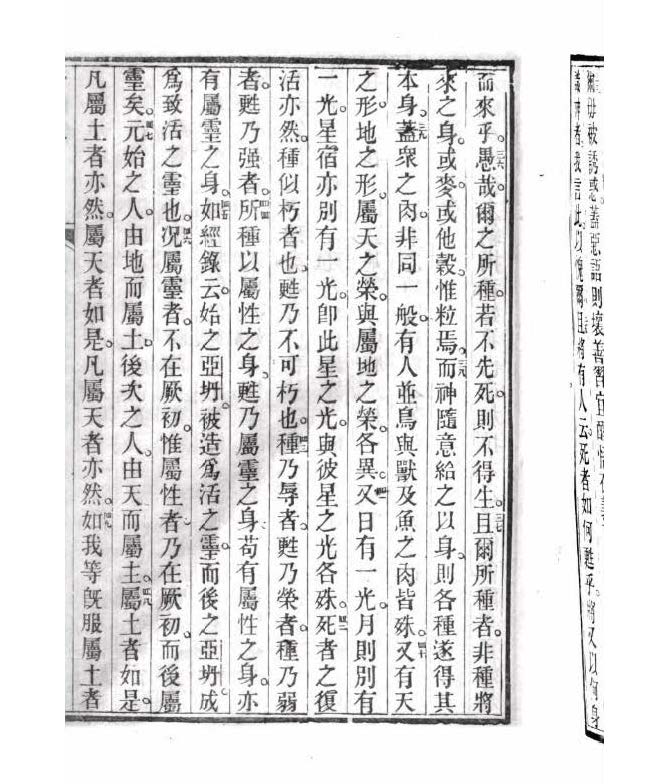 毋被誘惑。蓋惡語則壞善習宜醒
者。我言此以愧爾。且將有人云死者如何甦乎。將又以何身
而來乎。愚哉。爾之所種。若不先死。則不得生。且爾所種者。非種將
來之身。或麥或他穀。惟粒焉。而神隨意給之以身。則各種遂得其
本身。蓋眾之肉。非同一般。有人並鳥與獸及魚之肉皆殊。又有天
之形。地之形。屬天之榮。與屬地之榮。各異。又日有一光。月則別有
一光。星宿亦別有一光。卽此星之光。與彼星之光各殊。死者之復
活亦然。種似朽者也。甦乃不可朽也。種乃辱者。甦乃榮者。種乃弱
者。甦乃强者。所種以屬性之身。甦乃屬靈之身。苟有屬性之身。亦
有屬靈之身。如經錄云。始之亞坍。被造爲活之靈。而後之亞坍成
爲致活之靈也。況屬靈者。不在厥初。惟屬性者。乃在厥初。而後屬
靈矣。元始之人。由地而屬土。後次之人。由天而屬土。屬土者如是。
凡屬土者亦然。屬天者如是。凡屬天者亦然。如我等旣服屬土者